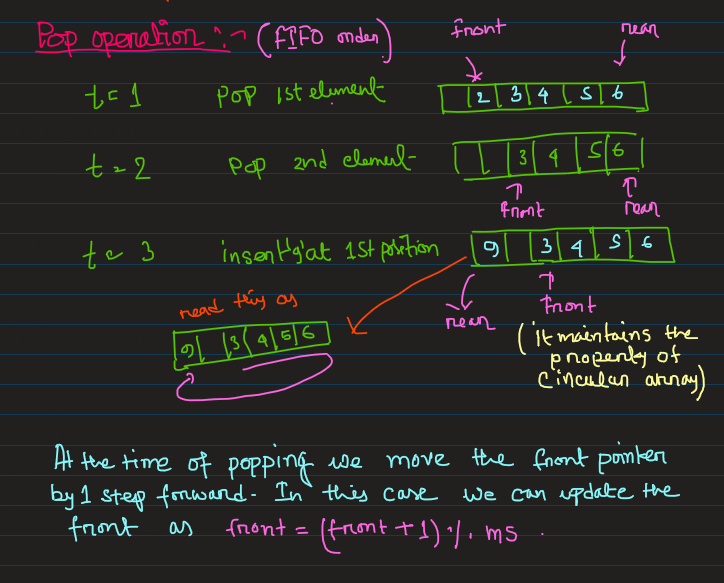 Pop operation :- (FIFO order)
front
rear
t = 1 POP 1st element 2 3 4 5 6
t = 2 Pop 2nd element 3 4 5 6
front rear
t = 3 insert '9' at 1st position 9 3 4 5 6
rear front
read this as
9 3 4 5 6
(it maintains the
property of
Circular array)
At the time of popping we move the front pointer
by 1 step forward. In this case we can update the
front as front = (front + 1) % ms .